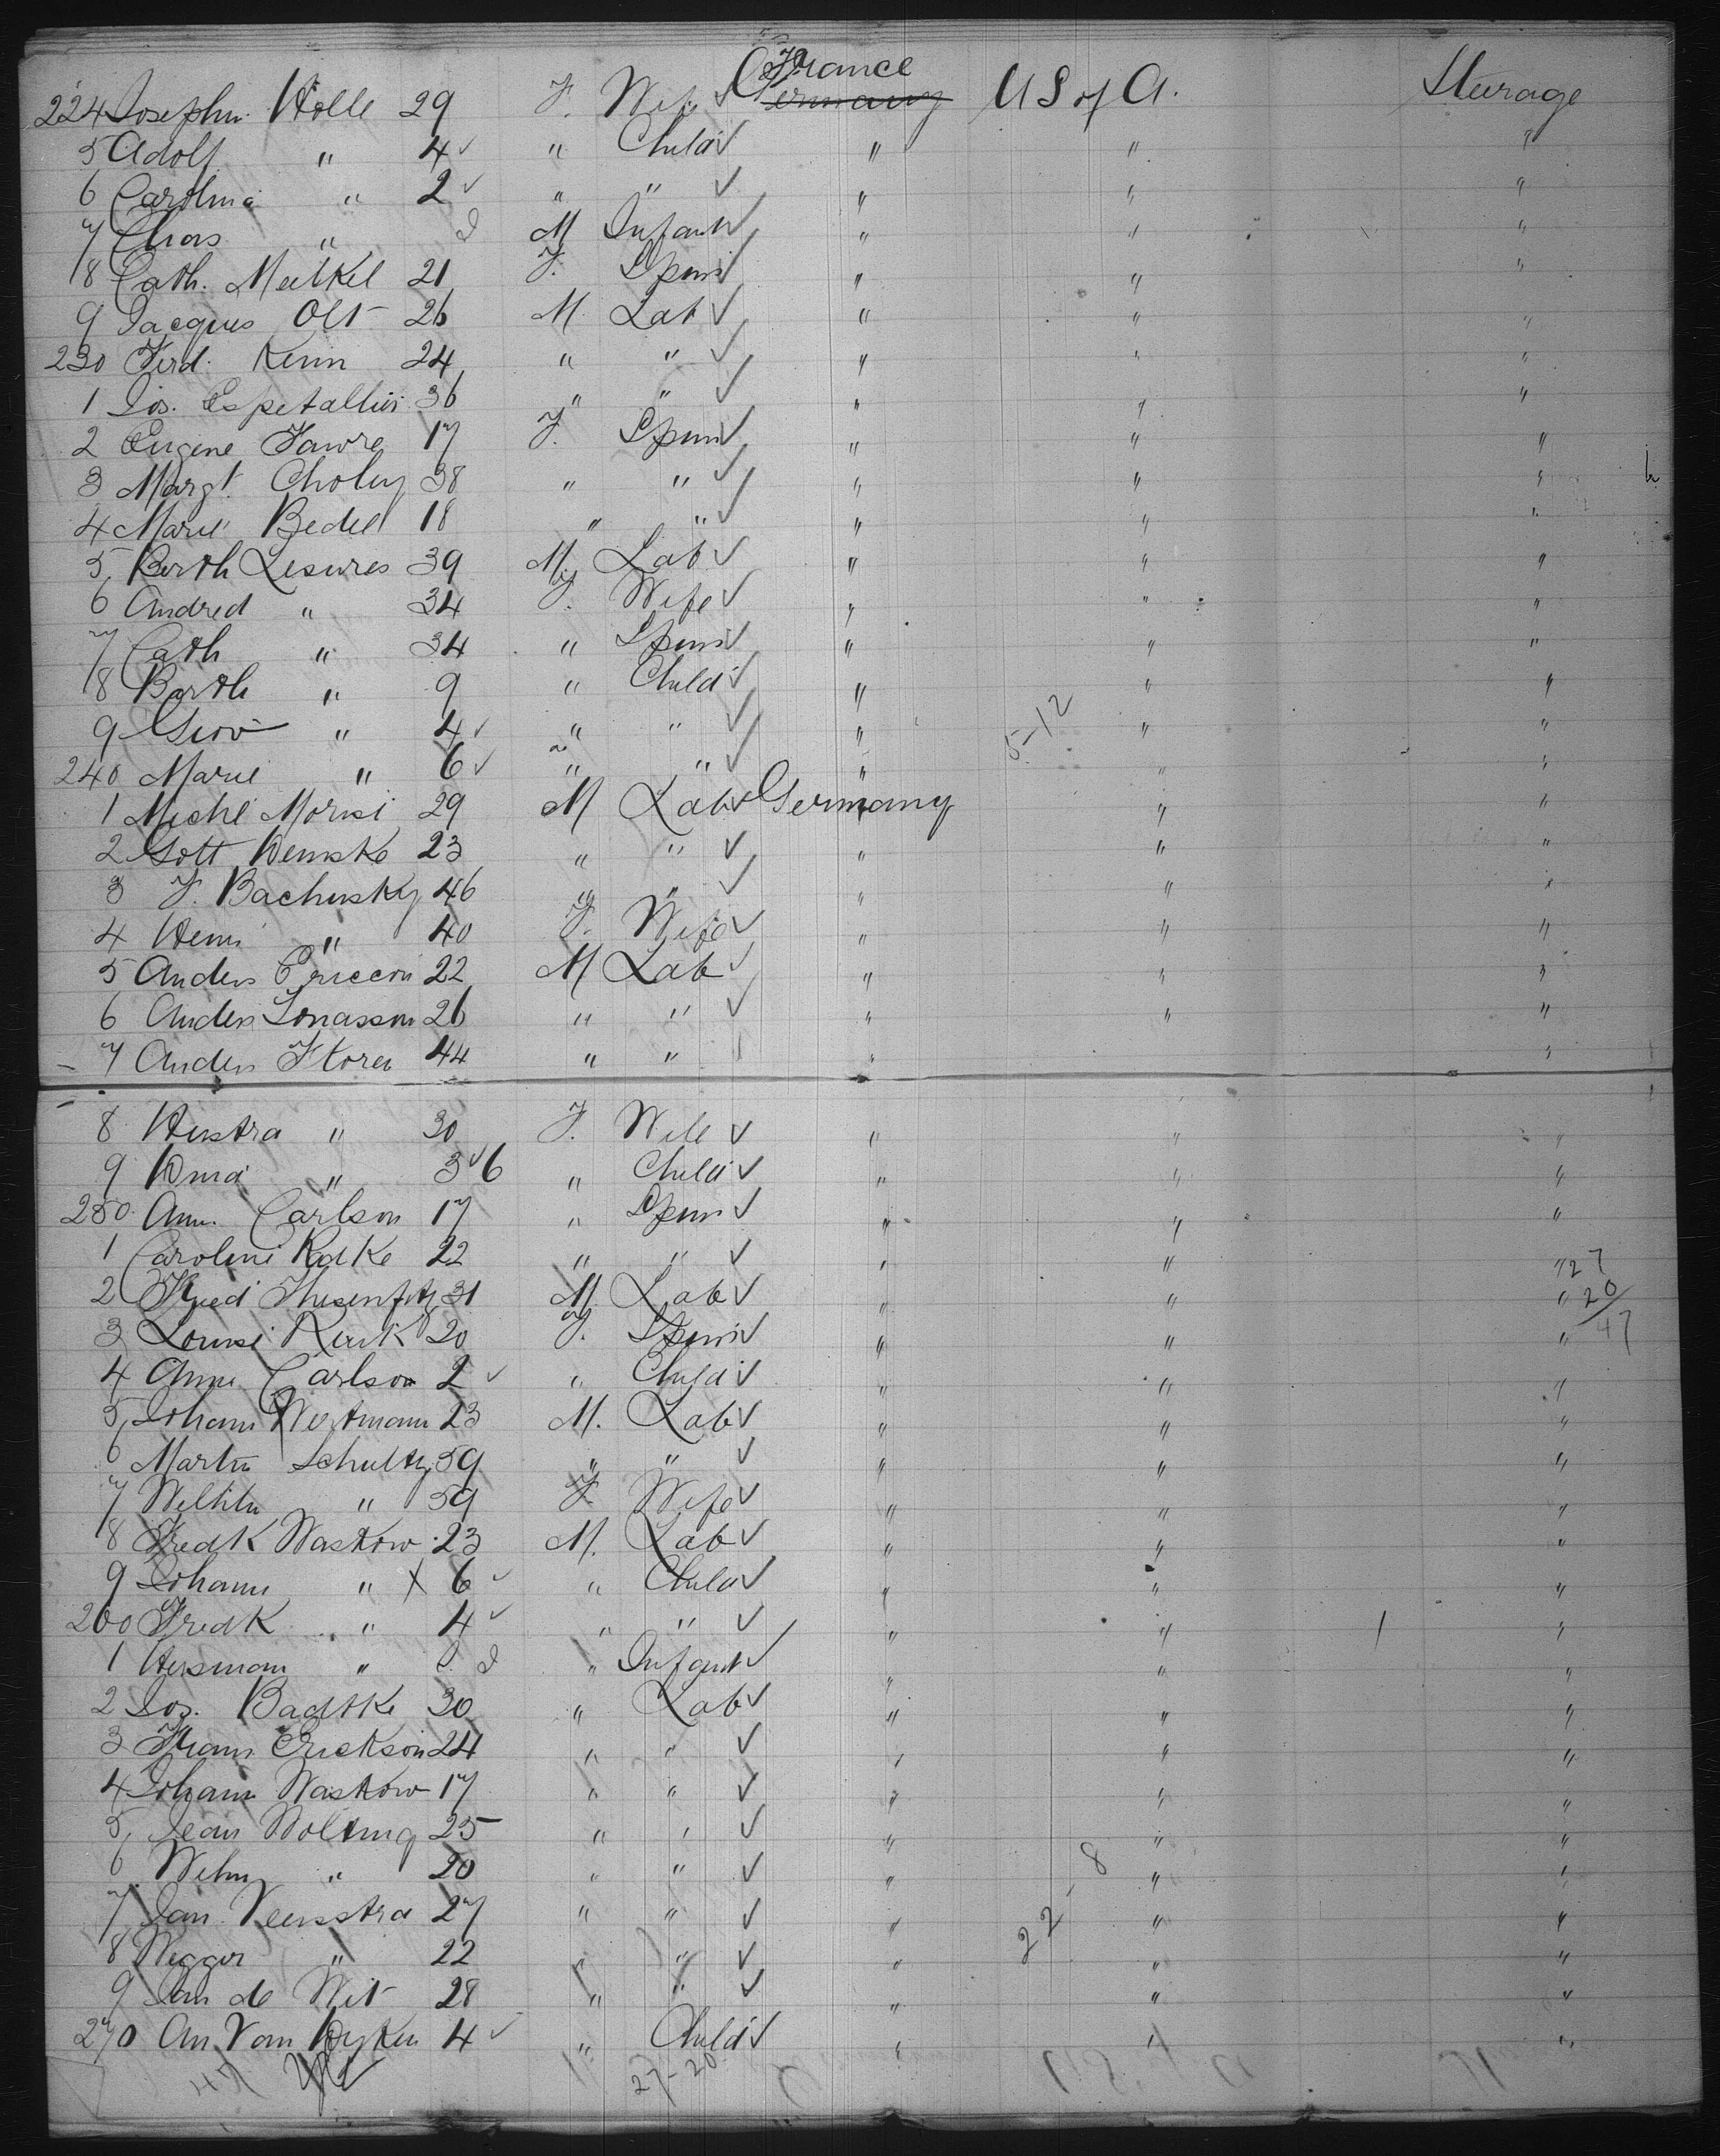 France
224 Josephn. Holle 29 F. Wife ✓ Germany U S of A. Steerage
5 Adolf " 4 ✓ " Child ✓ " " "
6 Carolina " 2 ✓ " " ✓ " " "
7 Chas " M Infant ✓ " " "
8 Cath. Meikel 21 F. Spins ✓ " " "
9 Jacques Olt 26 M. Lab ✓ " " "
230 Ferd. Keim 24 " " ✓ " " "
1 Jos. Espetallier 36 " " ✓ " " "
2 Eugene Fawre 17 F. Spins ✓ " " "
3 Margt. Choley 38 " " ✓ " " "
4 Marie Bedel 18 " " ✓ " " "
5 Berth Lesures 39 M. Lab ✓ " " "
6 Andred " 34 F. Wife ✓ " " "
7 Cath " 34 " Spins ✓ " " "
8 Barth " 9 " Child ✓ " " "
9 Giov " 4 ✓ " " ✓ " 5-12 " "
240 Marie " 6 ✓ " " ✓ " " "
1 Michl Morisi 29 M Lab ✓ Germany " "
2 Gott Demske 23 " " ✓ " " "
3 F. Bachusky 46 " " ✓ " " "
4 Henri " 40 F. Wife ✓ " " "
5 Anders Ericcon 22 M Lab ✓ " " "
6 Anders Jonasson 26 " " ✓ " " "
7 Anders Storen 44 " " " " "
8 Herstra " 30 F. Wife ✓ " " "
9 Oma " 3 ✓ 6 " Child ✓ " " "
250 Ann. Carlson 17 " Spins ✓ " " "
1 Caroline Radke 22 " " ✓ " " " 27
2 Fried 31 M. Lab ✓ " " " 20
3 Louisi Rink 20 F. Spins ✓ " " " 47
4 Anna Carlson 2 ✓ " Child ✓ " " "
5 Johann Westmann 23 M. Lab ✓ " " "
6 Martin Schultz 59 " " ✓ " " "
7 59 F Wife ✓ " " "
8 Fredk Waskow 23 M. Lab ✓ " " "
9 Johann " X 6 ✓ " Child ✓ " " "
260 Fredk " 4 ✓ " " ✓ " " "
1 Herman " " Infant ✓ " " "
2 Jos. Badtke 30 " Lab ✓ " " "
3 Frans Erickson 24 " " ✓ " " "
4 Johann Waskow 17 " " ✓ " " "
5 Jean Wolting 25 " " ✓ " " "
6 Wilm " 20 " " ✓ " " "
7 Jan Veenstra 27 " " ✓ " 22-8 " "
8 Wegger " 22 " " ✓ " " "
9 Jan de Wit 28 " " ✓ " " "
270 An Van Dyken 4 ✓ " Child ✓ " " "
47 27-20